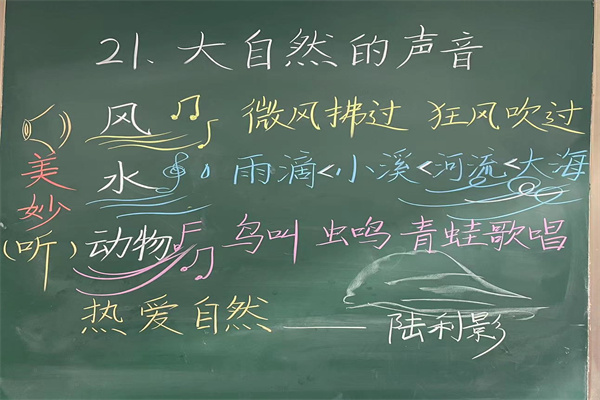 21. 大自然的声音
美妙
（听）
风 微风拂过 狂风吹过
水 雨滴<小溪<河流<大海
动物 鸟叫 虫鸣 青蛙歌唱
热爱自然 —— 陆利影